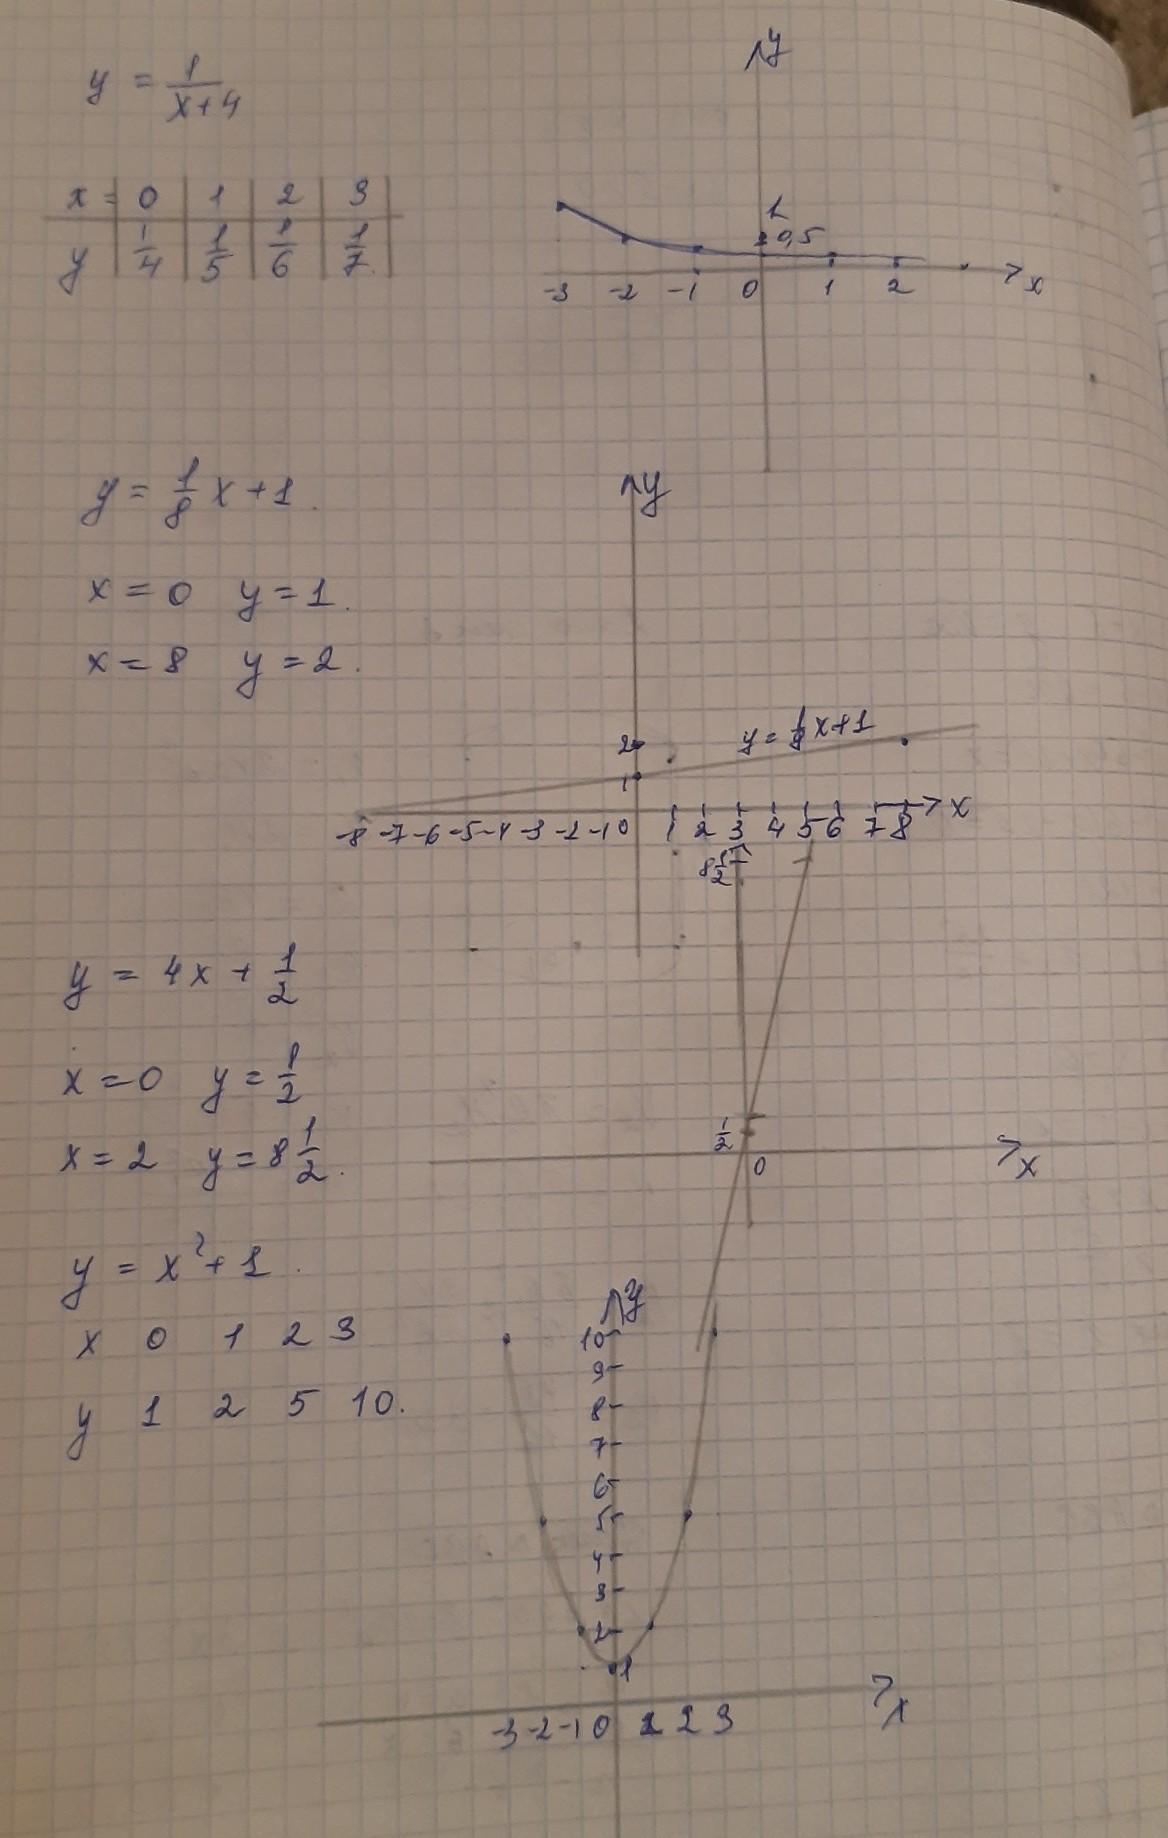 y = 1/(x+4)
x = 0 1 2 3
y 1/4 1/5 1/6 1/7
y
1
0,5
-3 -2 -1 0 1 2 x
y = 1/8 x + 1.
x = 0 y = 1.
x = 8 y = 2.
y
2
y = 1/8 x + 1
1
-8 -7 -6 -5 -4 -3 -2 -1 0 1 2 3 4 5 6 7 8 x
y = 4x + 1/2
x = 0 y = 1/2
x = 2 y = 8 1/2.
8 1/2
1/2
0 x
y = x² + 1.
x 0 1 2 3
y 1 2 5 10.
y
10
9
8
7
6
5
4
3
2
1
-3 -2 -1 0 1 2 3 x